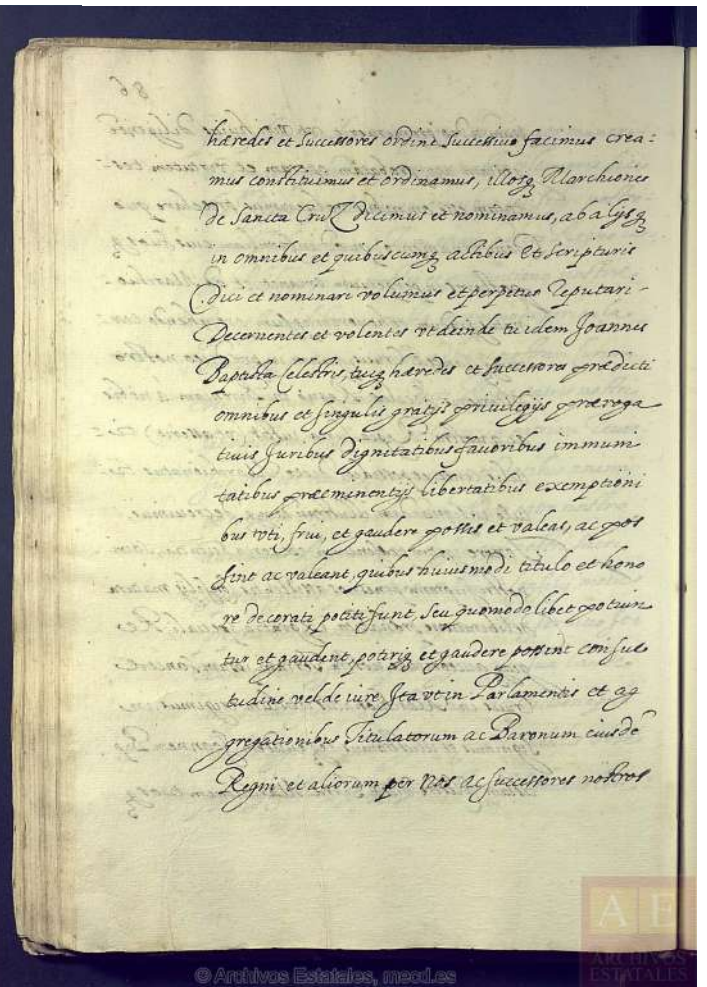 hæredes et Successores ordine Successiuo facimus crea=
mus constituimus et ordinamus, illosq₃ Marchiones
de Sancta Cruz dicimus et nominamus, ab alijsq₃
in omnibus et quibuscumq₃ actibus et Scripturis
dici et nominari volumus et perpetuo reputari-
Decernentes et volentes vt deinde tu idem Joannes
Baptista Celestris, tuiq₃ hæredes et successores prædicti
omnibus et singulis gratijs priuilegijs præroga
tiuis Juribus dignitatibus fauoribus immuni
tatibus præeminentijs libertatibus exemptioni
bus vti, frui, et gaudere possis et valeas, ac pos
sint ac valeant, quibus huiusmodi titulo et hono
re decorati potiti sunt, seu quomodolibet potiun
tur et gaudent, potiriq₃ et gaudere possint consue
tudine vel de iure, Ita vt in Parlamentis et ag
gregationibus Titulatorum ac Baronum eiusdē
Regni et aliorum per Nos ac successores nostros
86
© Archivos Estatales, mecd.es
AE
ARCHIVOS
ESTATALES